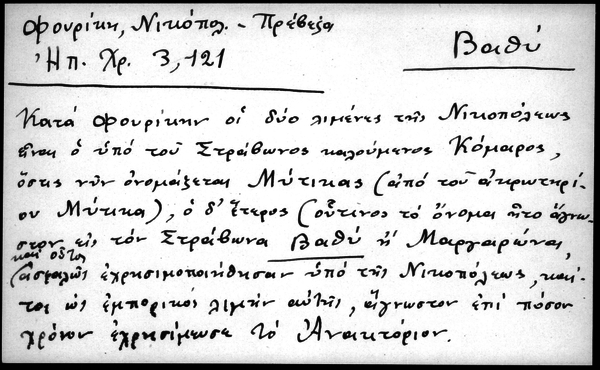 Φουρίκη, Νικόπολ. - Πρέβεζα
Ἠπ. Χρ. 3, 121
Βαθύ
Κατά Φουρίκην οἱ δύο λιμένες τῆς Νικοπόλεως
εἶναι ὁ ὑπό τοῦ Στράβωνος καλούμενος Κόμαρος,
ὅστις νῦν ὀνομάζεται Μύτικας (ἀπό τοῦ ἀκρωτηρί-
ου Μύτικα), ὁ δ' ἕτερος (οὗτινος τό ὄνομα ἦτο ἄγνω-
στον εἰς τόν Στράβωνα Βαθύ ἤ Μαργαρώνα,
καί οὗτος
(ἀσφαλῶς ἐχρησιμοποιήθησαν ὑπό τῆς Νικοπόλεως, καί-
τοι ὡς ἐμπορικός λιμήν αὐτῆς, ἄγνωστον ἐπί πόσον
χρόνον ἐχρησίμευσε τό Ἀνακτόριον.